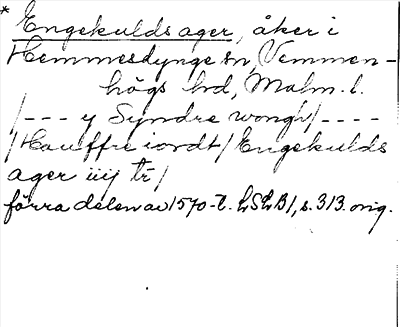 * Engekulds ager, åker i
Hemmesdynge sn, Vemmen-
högs hd, Malm. l.
/--- y Syndre wongh/----
/Hauffre iordt/ Engekulds
ager iiij tr/
förra delen av 1570-t. LSLB1, s. 313. orig.